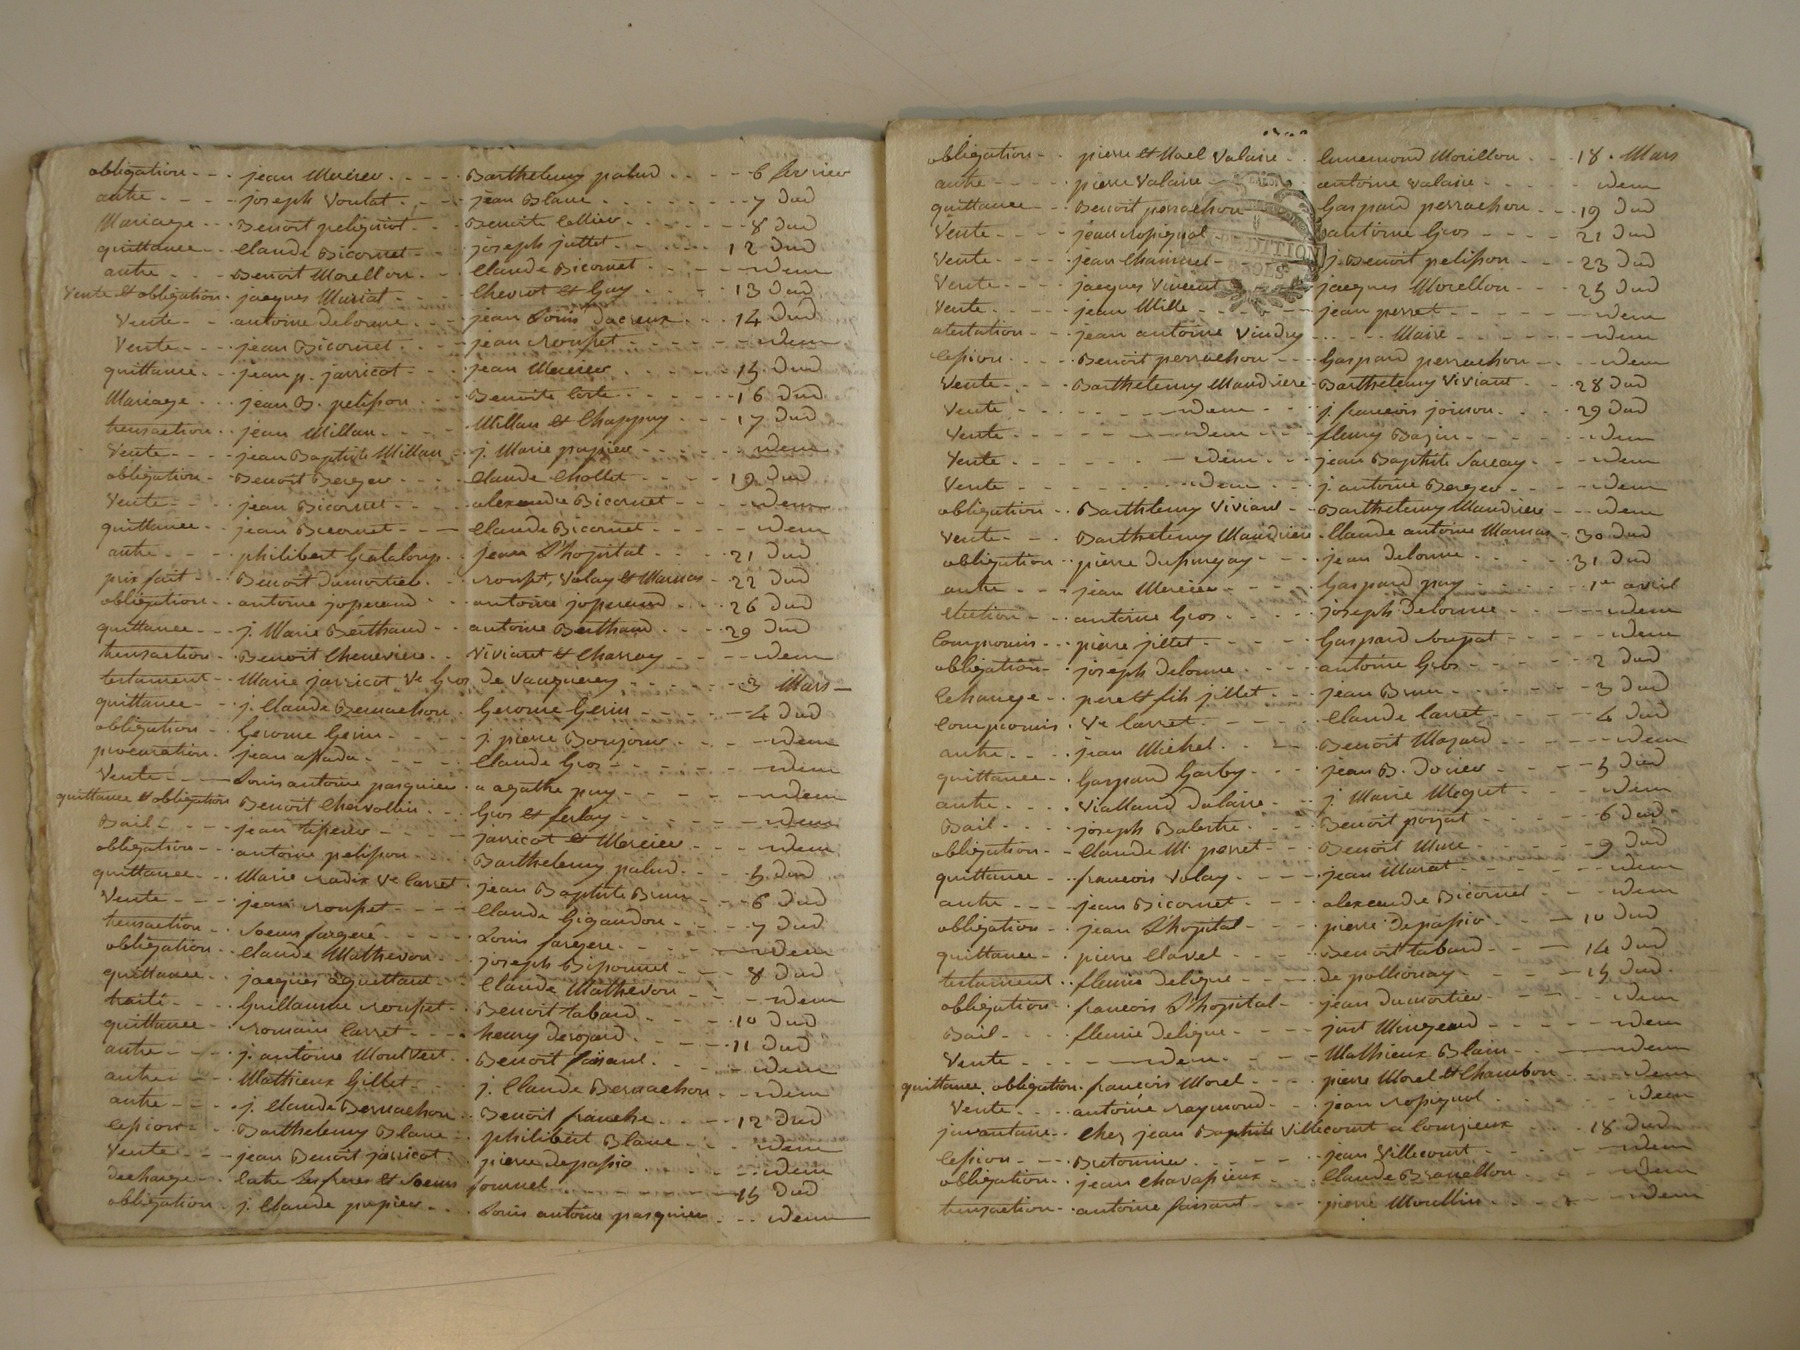 obligation - - - jean Mercier - - - - Barthelemy palud - - - - 6 fevrier
autre - - - - joseph Voutat - - - jean Blanc - - - - 7 dud
Mariage - - - Benoit peliguiot - - - Benoite Cellier - - - - 8 dud
quittance - - Claude Bicornet - - - joseph juttet - - - - 12 dud
autre - - - Benoit Morellon - - Claude Bicornet - - - - idem
Vente et obligation - jacques Muriat - - - Cheviot et Guy - - - - 13 dud
Vente - - antoine delorme - - - jean Louis dacreux - - - 14 dud
Vente - - - jean Bicornet - - - jean roupet - - - - idem
quittance - - jean p. jarricot - - - jean Mercier - - - - 15 dud
Mariage - - jean B. pelisson - - - Benoite Corte - - - - 16 dud
transaction - - jean Millan - - - - Millan et Chappuy - - - 17 dud
Vente - - - jean Baptiste Millan - - j. Marie papier - - - - idem
obligation - - Benoit Berger - - - Claude Chollet - - - - 19 dud
Vente - - - jean Bicornet - - - - alexandre Bicornet - - - idem
quittance - - jean Bicornet - - - Claude Bicornet - - - - idem
autre - - - philibert Gealaloup - - jean L'hopital - - - - 21 dud
prix fait - - Benoit dumortier - - roupet, Valay et Marnas - 22 dud
obligation - - antoine joperand - - antoine joperand - - - 26 dud
quittance - - j. Marie Berthaud - - antoine Berthaud - - - 29 dud
transaction - Benoit Cheneviere - - Viviant et Charvay - - - idem
testament - Marie jarricot Ve Gros de Vaugneray - - - - 3 Mars
quittance - - j. Claude Bernachon - Gerome Gerin - - - - 4 dud
obligation - - Gerome Gerin - - - - j. pierre Bonjour - - - idem
procuration - jean assada - - - - Claude Gros - - - - idem
Vente - - - Louis antoine pasquier - a agathe puy - - - - idem
quittance et obligation Benoit Chevollin - - - Gros et ferlay - - - - idem
Bail - - - jean tisseur - - - - jarricot et Mercier - - - idem
obligation - - antoine pelisson - - - Barthelemy palud - - - 5 dud
quittance - - Marie radix Ve Carret - jean Baptiste Brun - - - 6 dud
Vente - - - jean roupet - - - - Claude Gigandon - - - 7 dud
transaction - - Soeurs fargere - - - - Louis fargere - - - - idem
obligation - - Claude Mathevon - - joseph Bissonnet - - - 8 dud
quittance - - jacques aguettant - - Claude Mathevon - - - idem
traité - - - Guillaume roupet - - Benoit tabard - - - - 10 dud
quittance - - romain Carret - - - henry - - - - 11 dud
autre - - - j. antoine Montvert - - Benoit faisant - - - idem
autre - - - Mathieux Gillet - - - j. Claude Bernachon - - idem
autre - - - j. Claude Bernachon - - Benoit franche - - - 12 dud
Cession - - Barthelemy Blanc - - philibert Blanc - - - idem
Vente - - - jean Benoit jarricot - - pierre depassio - - - idem
decharge - - Entre les freres et Soeurs journel - - - - 15 dud
obligation - j. Claude papier - - - Louis antoine pasquier - - idem
obligation - - pierre et Noel Valaire - - Ennemond Morillon - - - 18 . Mars
autre - - - - pierre Valaire - - antoine Valaire - - - - idem
quittance - - Benoit perrachon - - Gaspard perrachon - - - 19 dud
Vente - - - - jean ropignol - - antoine Gros - - - - 21 dud
Vente - - - - jean Chamuet - - j. Benoit pelisson - - - 23 dud
Vente - - - - jacques Vincent - - jacques Morellon - - - 25 dud
Vente - - - - jean Mille - - - - jean perret - - - - idem
atestation - - jean antoine Vindry - - - - Maire - - - - idem
Cession - - - - Benoit perrachon - - - Gaspard perrachon - - - idem
Vente - - - Barthelemy Maudriere - Barthelemy Viviant - - - 28 dud
Vente - - - - - - idem - - - j. francois joinon - - - 29 dud
Vente - - - - - - idem - - - fleury Bazin - - - - idem
Vente - - - - - - idem - - - jean Baptiste Sarcay - - - idem
Vente - - - - - - idem - - - j. antoine Berger - - - idem
obligation - - Barthelemy Viviant - - Barthelemy Maudriere - - idem
Vente - - - Barthelemy Maudriere - Claude antoine Marnas - 30 dud
obligation - pierre dupingay - - - jean delorme - - - - 31 dud
autre - - - jean Mercier - - - - Gaspard puy - - - - 1er avril
election - - antoine Gros - - - - joseph delorme - - - - idem
Compromis - - pierre jillet - - - - Gaspard roupat - - - - idem
obligation - - joseph delorme - - - - antoine Gros - - - - 2 dud
Echange - - pere et fils jillet - - - jean Brun - - - - 3 dud
Compromis - Ve Carret - - - - Claude Carret - - - - 4 dud
autre - - - jean Michel - - - Benoit Mazard - - - - idem
quittance - - Gaspard Garby - - - jean B. - - - 5 dud
autre - - - Vialland dalaire - - j. Marie - - - idem
Bail - - - joseph Balestre - - - Benoit ponzat - - - - 6 dud
obligation - - Claude M. perret - - Benoit Mure - - - - 9 dud
quittance - - francois Valay - - - jean Murat - - - - idem
autre - - - jean Bicornet - - - alexandre Bicornet - - idem
obligation - - jean L'hopital - - - pierre depassio - - - 10 dud
quittance - - pierre Clavel - - - Benoit tabard - - - 14 dud
testament - - fleurie deligne - - - de pollionay - - - - 15 dud
obligation - - francois L'hopital - - jean dumortier - - - idem
Bail - - - fleurie deligne - - - just Mingeard - - - - idem
Vente - - - - idem - - - - Mathieux Blain - - - idem
quittance obligation - francois Morel - - - pierre Morel et Chambon - - idem
Vente - - - antoine raymond - - - jean ropignol - - - idem
jnventaire - - Chez jean Baptiste Villecourt a Courzieux - - - 18 dud
Cession - - - Bretonnier - - - - jean Villecourt - - - - idem
obligation - - jean Chavassieux - - - Claude - - - idem
transaction - antoine faisant - - - pierre Moullin - - - - idem